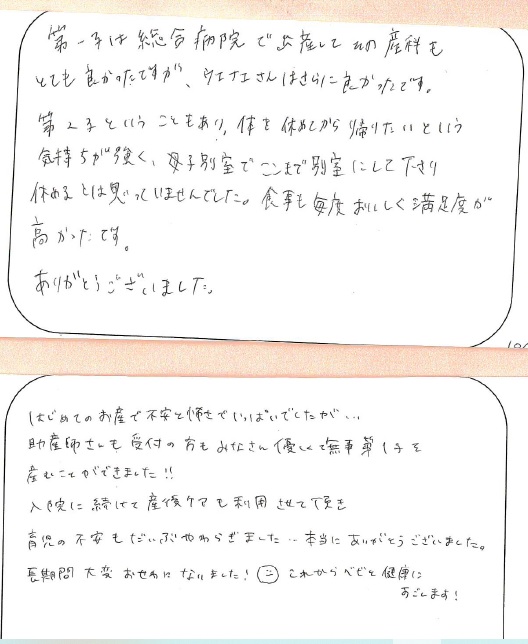 第一子は総合病院で出産してその産科も
とても良かったですが、ウエナエさんはさらに良かったです。
第2子ということもあり、体を休めてから帰りたいという
気持ちが強く、母子別室でここまで別室にして下さり
休めるとは思っていませんでした。食事も毎度おいしく満足度が
高かったです。
ありがとうございました。
はじめてのお産で不安と怖さでいっぱいでしたが…
助産師さんも受付の方もみなさん優しくて無事第1子を
産むことができました!!
入院に続けて産後ケアも利用させて頂き
育児の不安もだいぶやわらぎました…本当にありがとうございました。
長期間大変おせわになりました! これからベビと健康に
すごします!